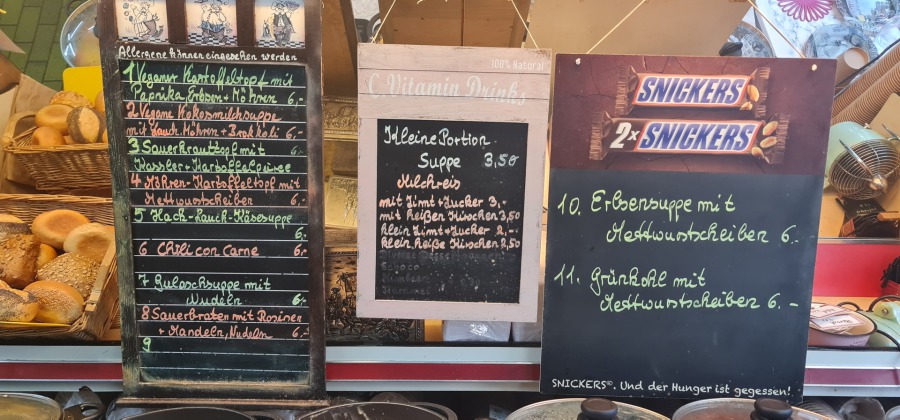 Allergene können eingesehen werden
1 Veganer Kartoffeltopf mit
Paprika Erbsen + Möhren 6,-
2 Vegane Kokosmilchsuppe
mit Lauch Möhren + Brokkoli 6,-
3 Sauerkrauttopf mit
Kassler + Kartoffelpüree
4 Möhren-Kartoffeltopf mit
Mettwurstscheiben 6,-
5 Hack-Lauch-Käsesuppe
6,-
6 Chili con Carne 6,-
7 Gulaschsuppe mit
Nudeln 6,-
8 Sauerbraten mit Rosinen
+ Mandeln, Nudeln 6,-
9
100% Natural
C Vitamin Drinks
Kleine Portion
Suppe 3,50
Milchreis
mit Zimt + Zucker 3,-
mit heißen Kirschen 3,50
klein Zimt + Zucker 2,-
klein heiße Kirschen 2,50
SNICKERS
2x SNICKERS
10. Erbsensuppe mit
Mettwurstscheiben 6.-
11. Grünkohl mit
Mettwurstscheiben 6.-
SNICKERS®. Und der Hunger ist gegessen!